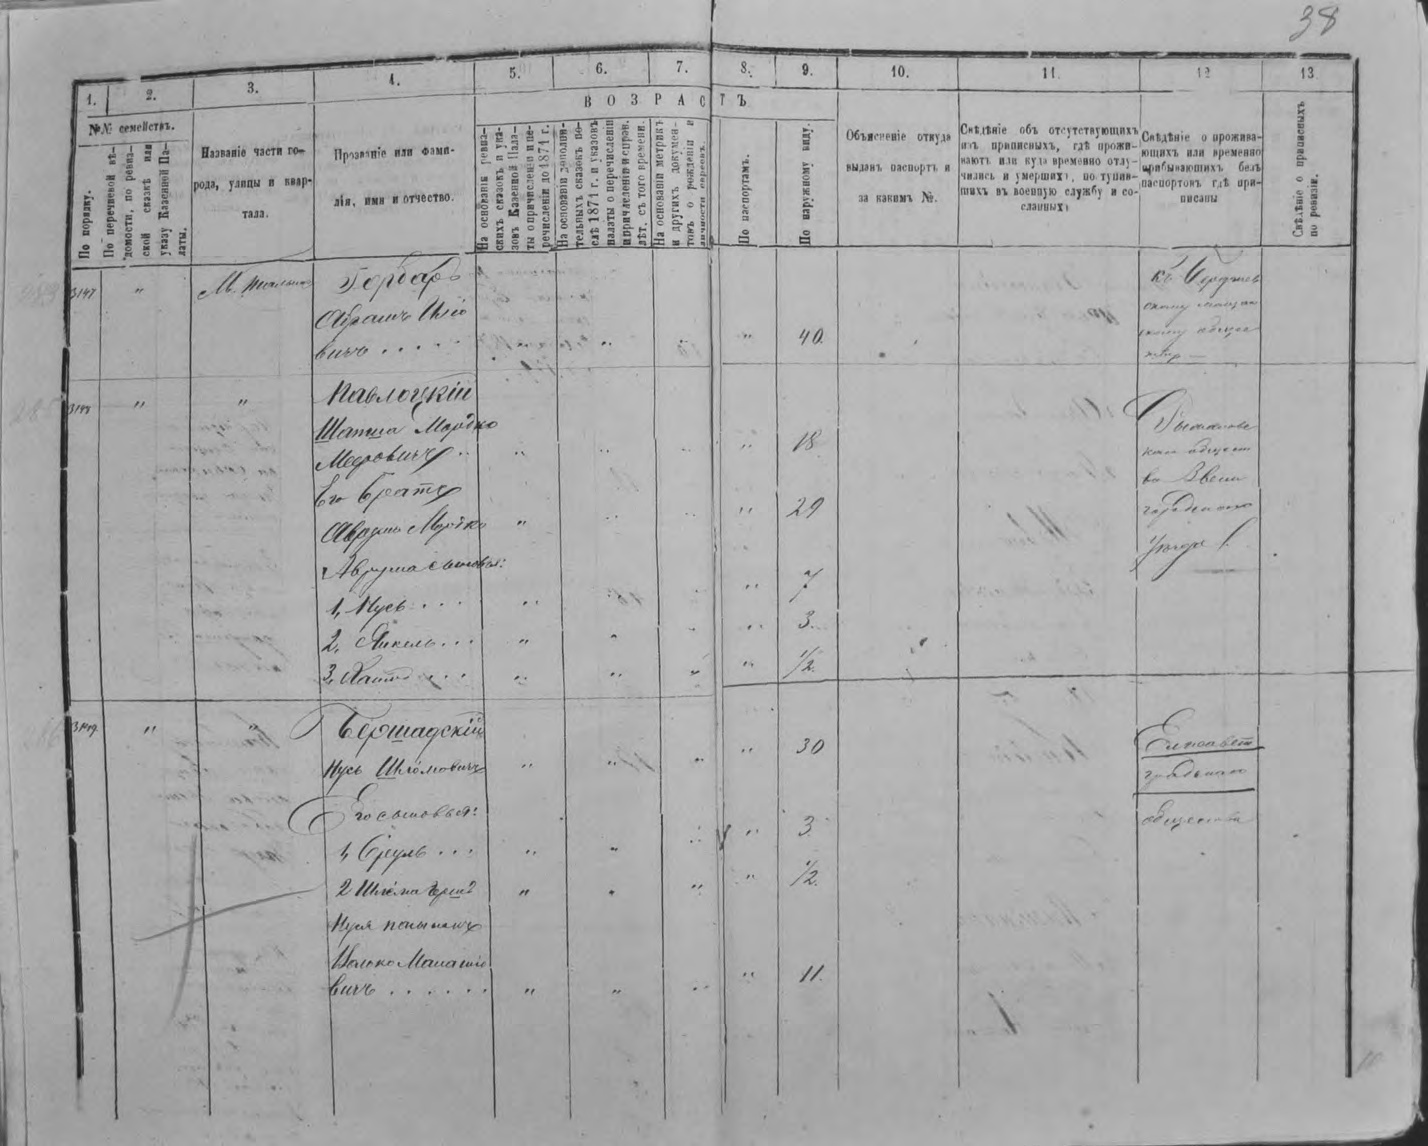 38
1.
2.
3.
4.
5.
6.
7.
8.
9.
10.
11.
12
13.
ВОЗРАСТЪ
№№ семействъ.
По порядку.
По перечневой вѣ-
домости, по ревиз-
ской сказкѣ или
указу Казенной Па-
латы.
Названіе части го-
рода, улицы и квар-
тала.
Прозваніе или фами-
лія, имя и отчество.
На основаніи ревиз-
скихъ сказокъ и ука-
зовъ Казенной Пала-
ты о причисленіи и пе-
речисленіи до 1871 г.
На основаніи дополни-
тельныхъ сказокъ по-
слѣ 1871 г. и указовъ
палаты о перечисленіи
и причисленіи и справ.
лѣт. съ того времени.
На основаніи метрикъ
и другихъ докумен-
товъ о рожденіи и
личности евреевъ.
По паспортамъ.
По наружному виду.
Объясненіе откуда
выданъ паспортъ и
за какимъ №.
Свѣдѣніе объ отсутствующихъ
изъ приписныхъ, гдѣ прожи-
ваютъ или куда временно отлу-
чились и умершихъ, поступив-
шихъ въ военную службу и со-
сланныхъ
Свѣдѣніе о прожива-
ющихъ или временно
прибывающихъ безъ
паспортовъ гдѣ при-
писаны
Свѣдѣніе о приписныхъ
по ревизіи.
3147 " Гербаръ
Абрамъ
вичъ . . . . . " " 40.
къ
скому мѣщан
скому обще
ству
3148 " " Павлоцкій
Шапша Мордко
Мееровичъ " " " " 18
Его братъ
Аврумъ Мордко " " " " 29
Аврума сыновья:
1, Нусь . . . . " " " " 7
2, Янкель . . . " " " " 3.
3, . . . . " " " " 1/2.
кого общест
ва Звени
городскаго
Уѣзда
3149 " " Бершадскій
Нусь Шлёмовичъ " " " " 30
Его сыновья:
1, Сруль . . . " " " " 3
2 Шлёма Гершъ " " " " 1/2.
Нуся
Волько
вичъ . . . . . . " " " " 11.
Елисавет
градскаго
общества